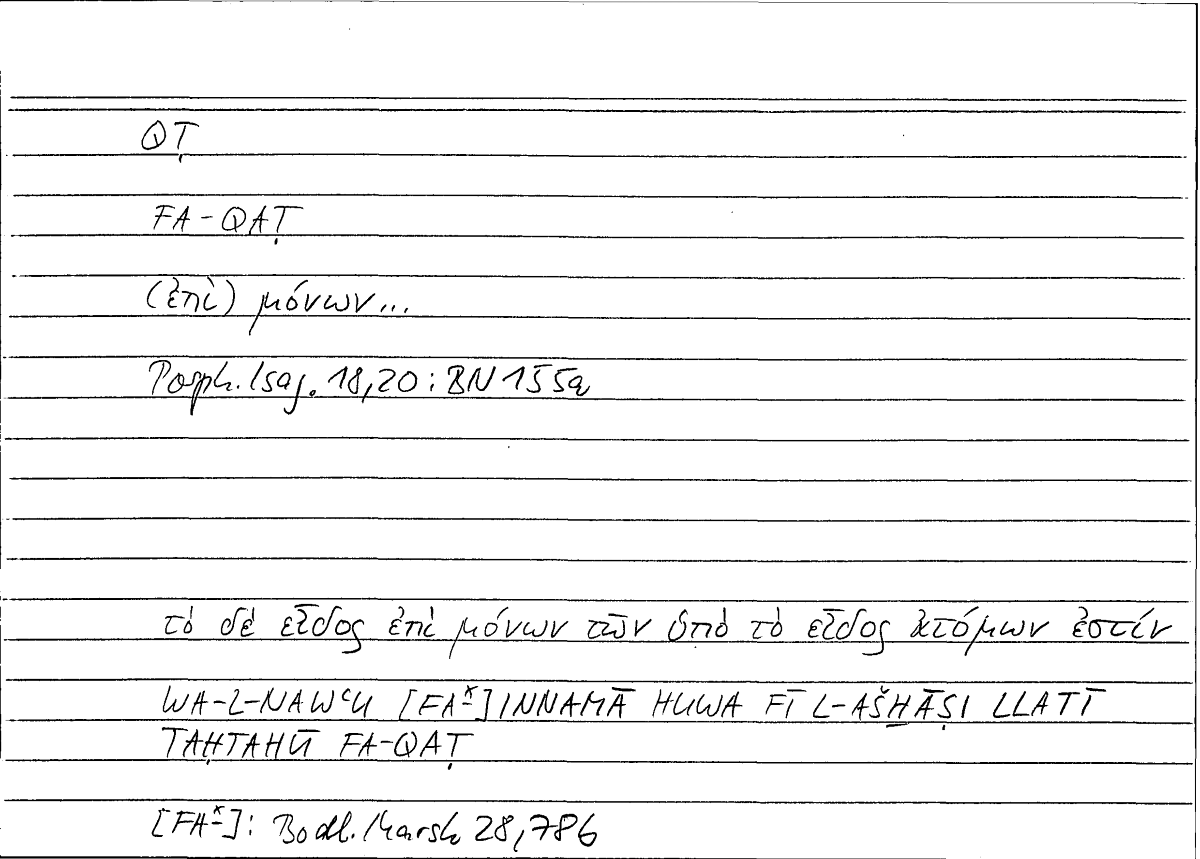 QṬ
FA-QAṬ
(ἐπὶ) μόνων...
Porph. Isag. 18,20: BN 155a
τὸ δὲ εἶδος ἐπὶ μόνων τῶν ὑπὸ τὸ εἶδος ἀτόμων ἐστίν
WA-L-NAWʿU [FAˣ]INNAMĀ HUWA FĪ L-AŠH̱ĀṢI LLATĪ
TAḤTAHŪ FA-QAṬ
[FAˣ]: Bodl. Marsh 28,78b